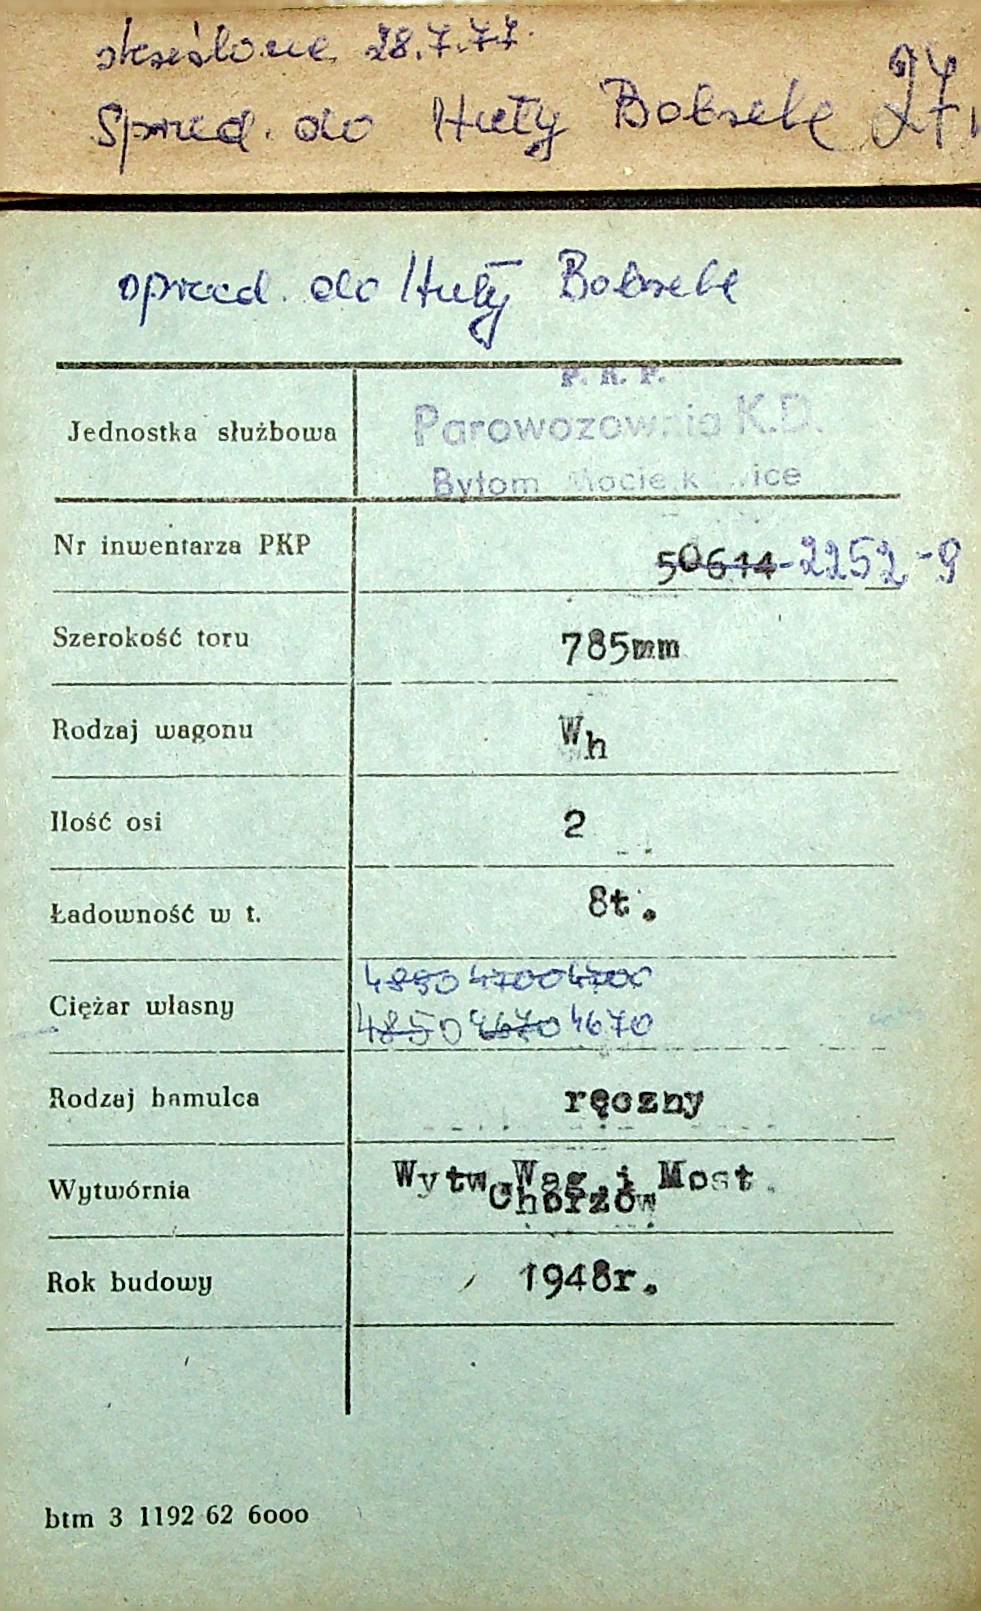 skreślone 28.7.77.
Sprzed. do Huty Bobrek 27
sprzed. do Huty Bobrek
Jednostka służbowa
P. K. P.
Parowozownia K.D.
Bytom
Nr inwentarza PKP 50614-2252-9
Szerokość toru 785mm
Rodzaj wagonu Wh
Ilość osi 2
Ładowność w t. 8t.
4850 4700 4700
Ciężar własny
4850 4670 4670
Rodzaj hamulca ręczny
Wytwórnia Wytw.Wag.i Most.
Chorzów
Rok budowy 1948r.
btm 3 1192 62 6000